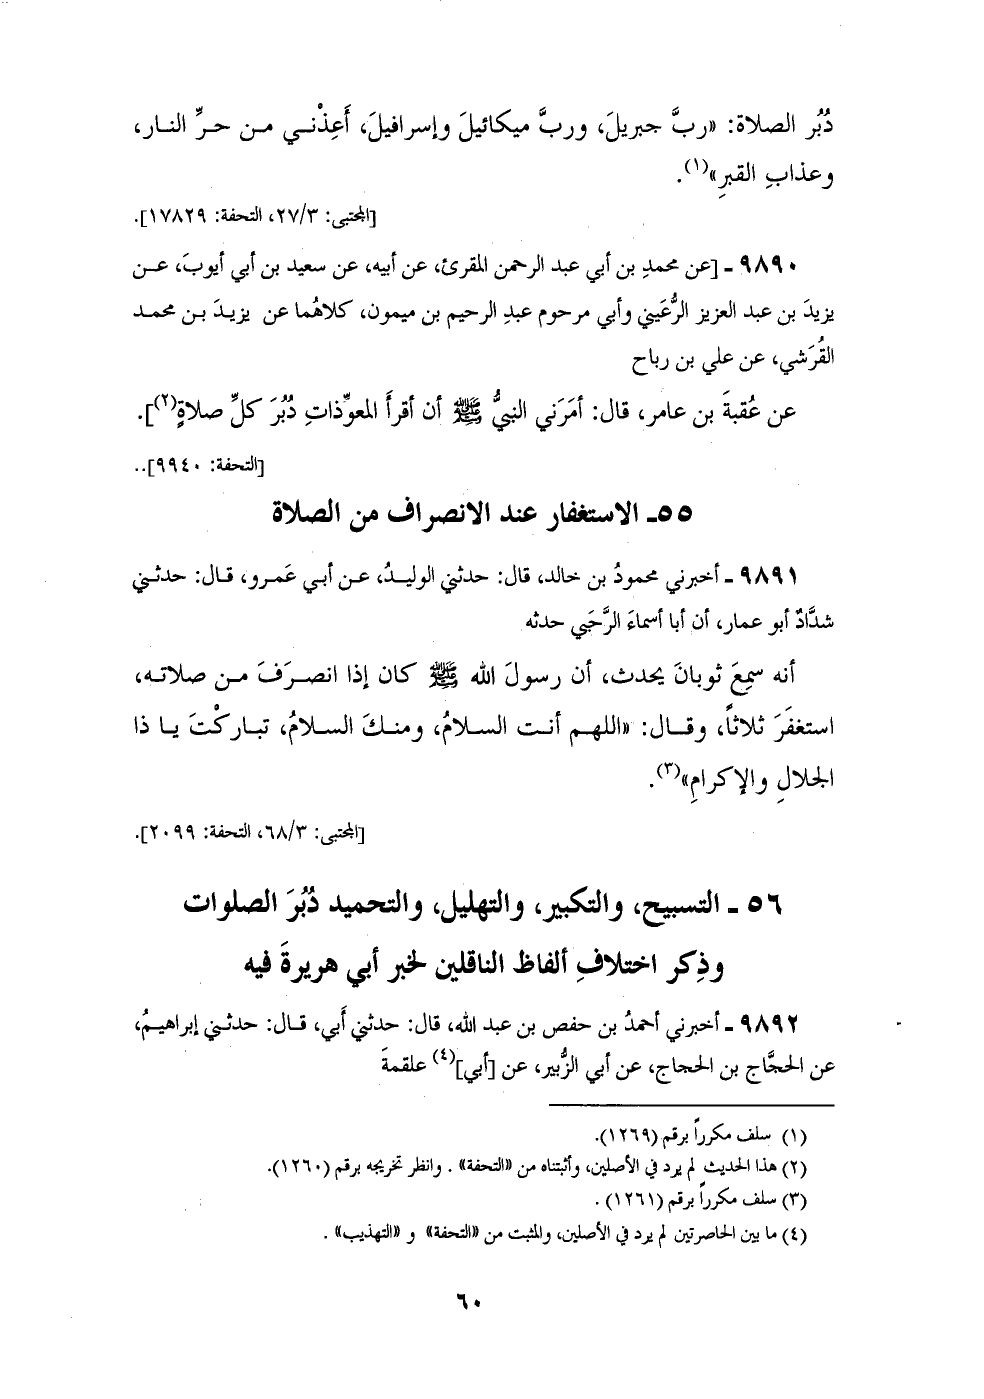 دُبُر الصلاة: «ربَّ جبريلَ، وربَّ ميكائيلَ وإسرافيلَ، أَعِذْني من حرِّ النار،
وعذابِ القبرِ»(١).
[المجتبى: ٢٧/٣، التحفة: ١٧٨٢٩].
٩٨٩٠ - [عن محمدِ بن أبي عبد الرحمن المقرئ، عن أبيه، عن سعيد بن أبي أيوبَ، عن
يزيدَ بن عبد العزيز الرُّعَيني وأبي مرحوم عبدِ الرحيم بن ميمون، كلاهُما عن يزيدَ بن محمد
القُرَشي، عن علي بن رباح
عن عُقبةَ بن عامر، قال: أمَرَني النبيُّ ﷺ أن أقرأَ المعوِّذاتِ دُبُرَ كلِّ صلاةٍ(٢)].
[التحفة: ٩٩٤٠]..
٥٥- الاستغفار عند الانصراف من الصلاة
٩٨٩١ - أخبرني محمودُ بن خالد، قال: حدثني الوليدُ، عن أبي عَمرو، قال: حدثني
شدَّادٌ أبو عمار، أن أبا أسماءَ الرَّحَبي حدثه
أنه سمِعَ ثوبانَ يحدث، أن رسولَ الله ﷺ كان إذا انصرَفَ من صلاته،
استغفَرَ ثلاثاً، وقال: «اللهم أنت السلامُ، ومنكَ السلامُ، تباركْتَ يا ذا
الجلالِ والإكرامِ»(٣).
[المجتبى: ٦٨/٣، التحفة: ٢٠٩٩].
٥٦ - التسبيح، والتكبير، والتهليل، والتحميد دُبُرَ الصلوات
وذِكر اختلافِ ألفاظ الناقلين لخبر أبي هريرةَ فيه
٩٨٩٢ - أخبرني أحمدُ بن حفص بن عبد الله، قال: حدثني أَبي، قال: حدثني إبراهيمُ،
عن الحجَّاج بن الحجاج، عن أبي الزُّبير، عن [أبي](٤) علقمةَ
(١) سلف مكرراً برقم (١٢٦٩).
(٢) هذا الحديث لم يرد في الأصلين، وأثبتناه من «التحفة» . وانظر تخريجه برقم (١٢٦٠).
(٣) سلف مكرراً برقم (١٢٦١) .
(٤) ما بين الحاصرتين لم يرد في الأصلين، والمثبت من «التحفة» و «التهذيب» .
٦٠